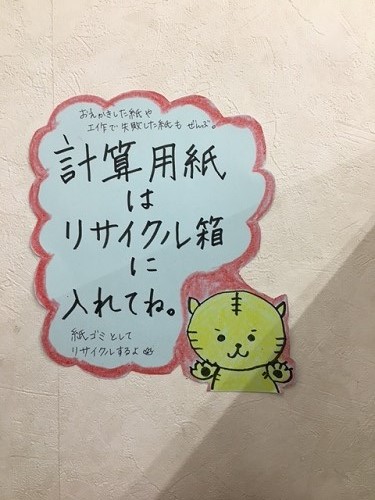 おえかきした紙や
工作で失敗した紙も ぜんぶ。
計算用紙
は
リサイクル箱
に
入れてね。
紙ゴミとして
リサイクルするよ